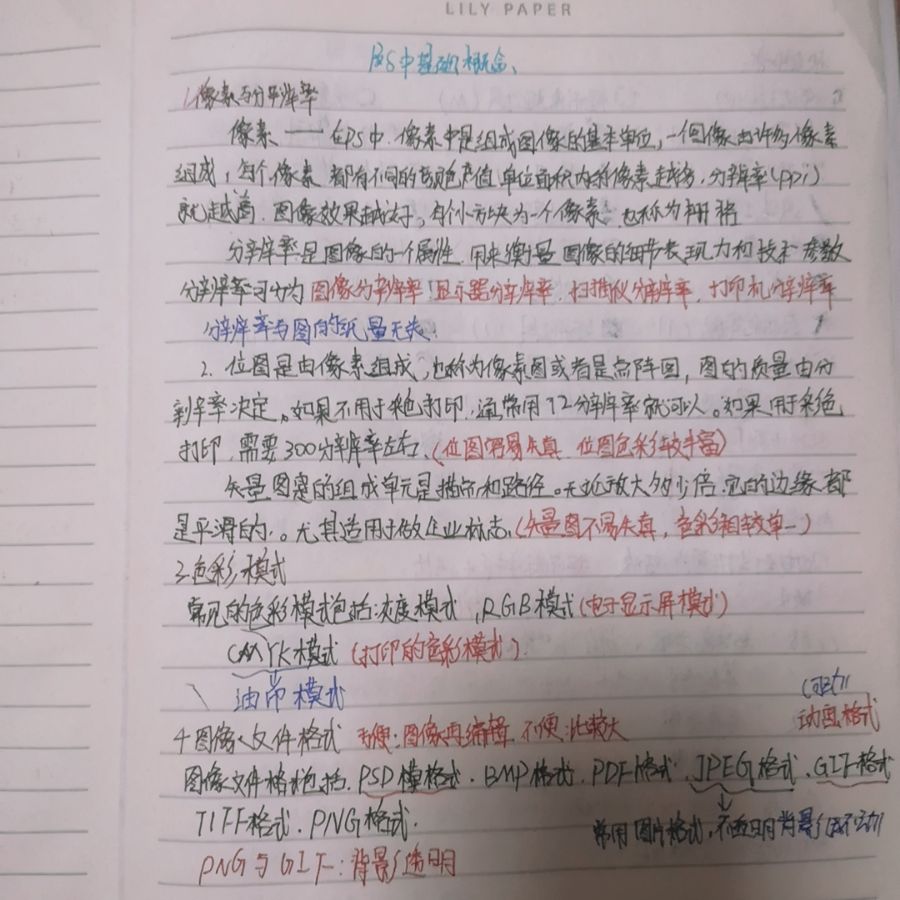 LILY PAPER
PS中基础概念、
1.像素与分辨率
像素——在PS中.像素中是组成图像的基本单位,一个图像由许多像素
组成,每个像素都有不同的颜色值.单位面积内的像素越多,分辨率(ppi)
就越高.图像效果越好,每个小方块为一个像素.也称为栅格
分辨率是图像的一个属性.用来衡量图像的细节表现力和技术参数
分辨率可分为图像分辨率.显示器分辨率.扫描仪分辨率.打印机分辨率
分辨率与图的纸量无关.
2.位图是由像素组成,也称为像素图或者是点阵图,图的质量由分
辨率决定。如果不用于彩色打印,通常用72分辨率就可以。如果用于彩色
打印,需要300分辨率左右.(位图容易失真.位图色彩较丰富)
矢量图案的组成单元是描点和路径。无论放大多少倍.它的边缘都
是平滑的.。尤其适用于做企业标志.(矢量图不易失真,色彩相较单一)
3.色彩模式
常见的色彩模式包括:灰度模式,RGB模式(电子显示屏模式)
CMYK模式(打印的色彩模式).
油币模式
(可动)
动图格式
4图像文件格式 方便:图像再编辑 不便:比较大
图像文件格式包括.PSD模格式.BMP格式.PDF格式.JPEG格式.GIF格式
TIFF格式.PNG格式.
常用图片格式,不透明背景
PNG与GIF:背景透明